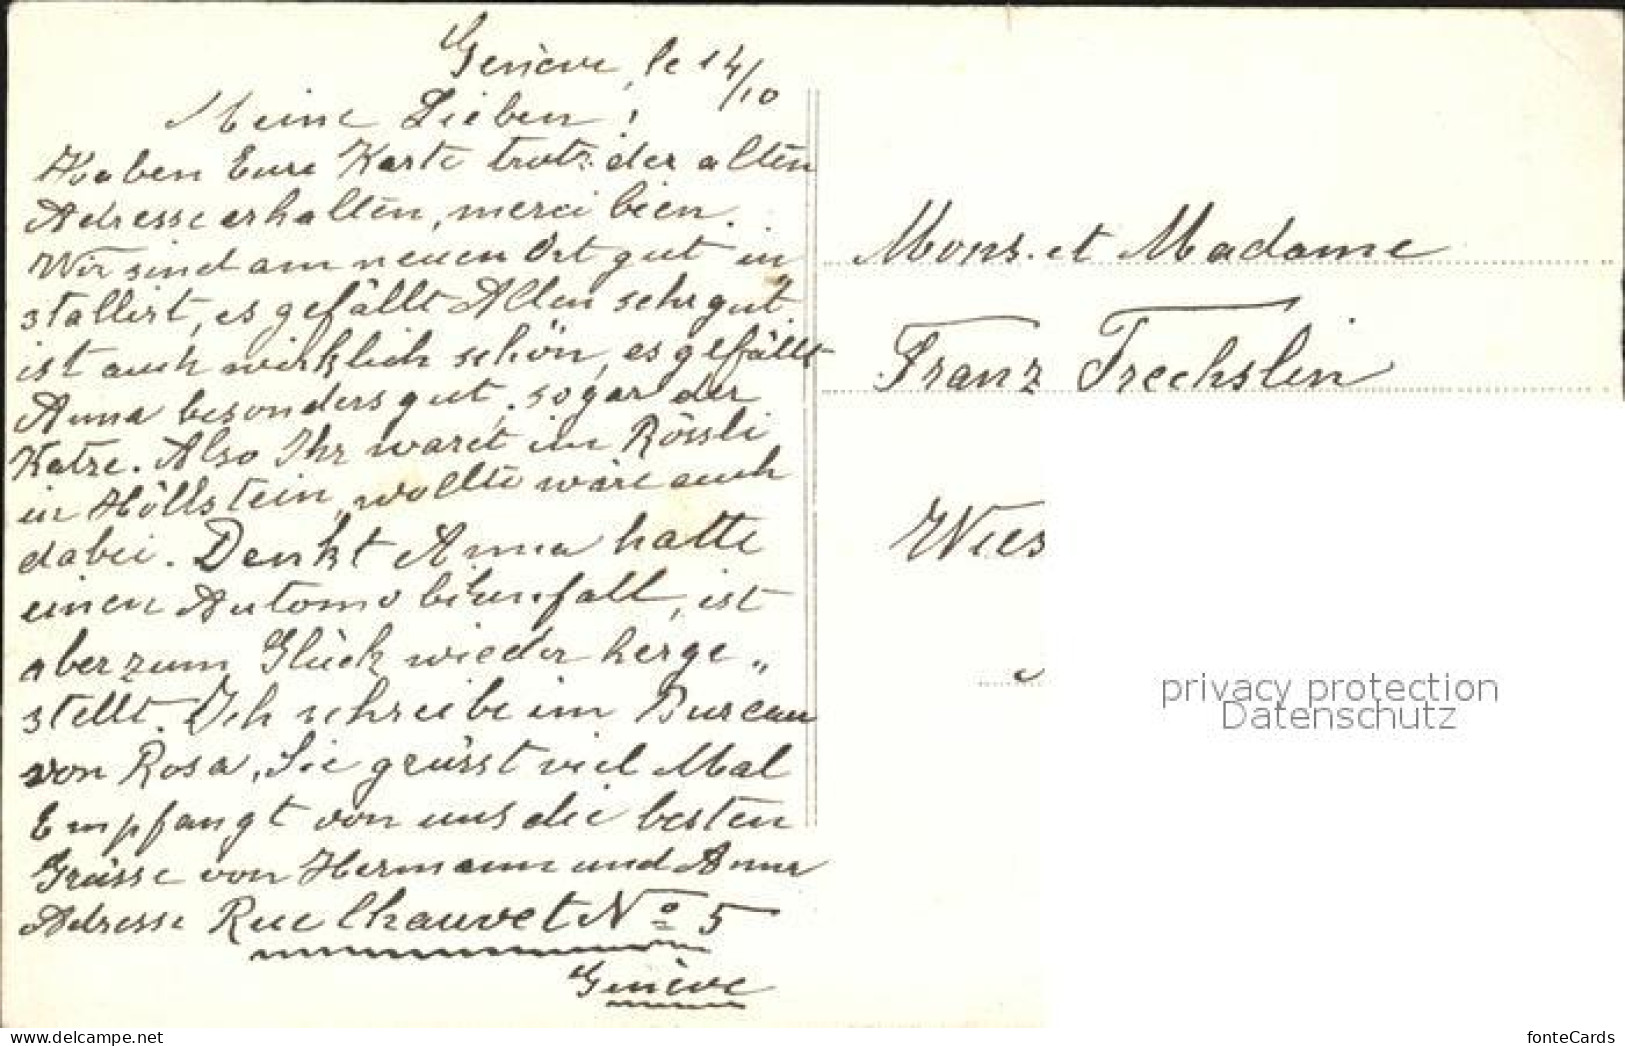 Genève, le 14/10
Meine Lieben!
Haben Eure Karte trotz der alten
Adresse erhalten, merci bien.
Wir sind am neuen Ort gut in
stallirt, es gefällt Allen sehr gut.
ist auch wirklich schön, es gefällt
Anna besonders gut, sogar der
Katze. Also Ihr waret im Rössli
in Höllstein, wollte wäre auch
dabei. Denkt Anna hatte
einen Automobilunfall, ist
aber zum Glück wieder herge„
stellt. Ich schreibe im Bureau
von Rosa, Sie grüsst viel Mal
Empfangt von uns die besten
Grüsse von Hermann und Anna
Adresse Rue Chauvet No 5
Genève
Mons. et Madame
Franz Frechslin
Wies
privacy protection
Datenschutz
fonteCards